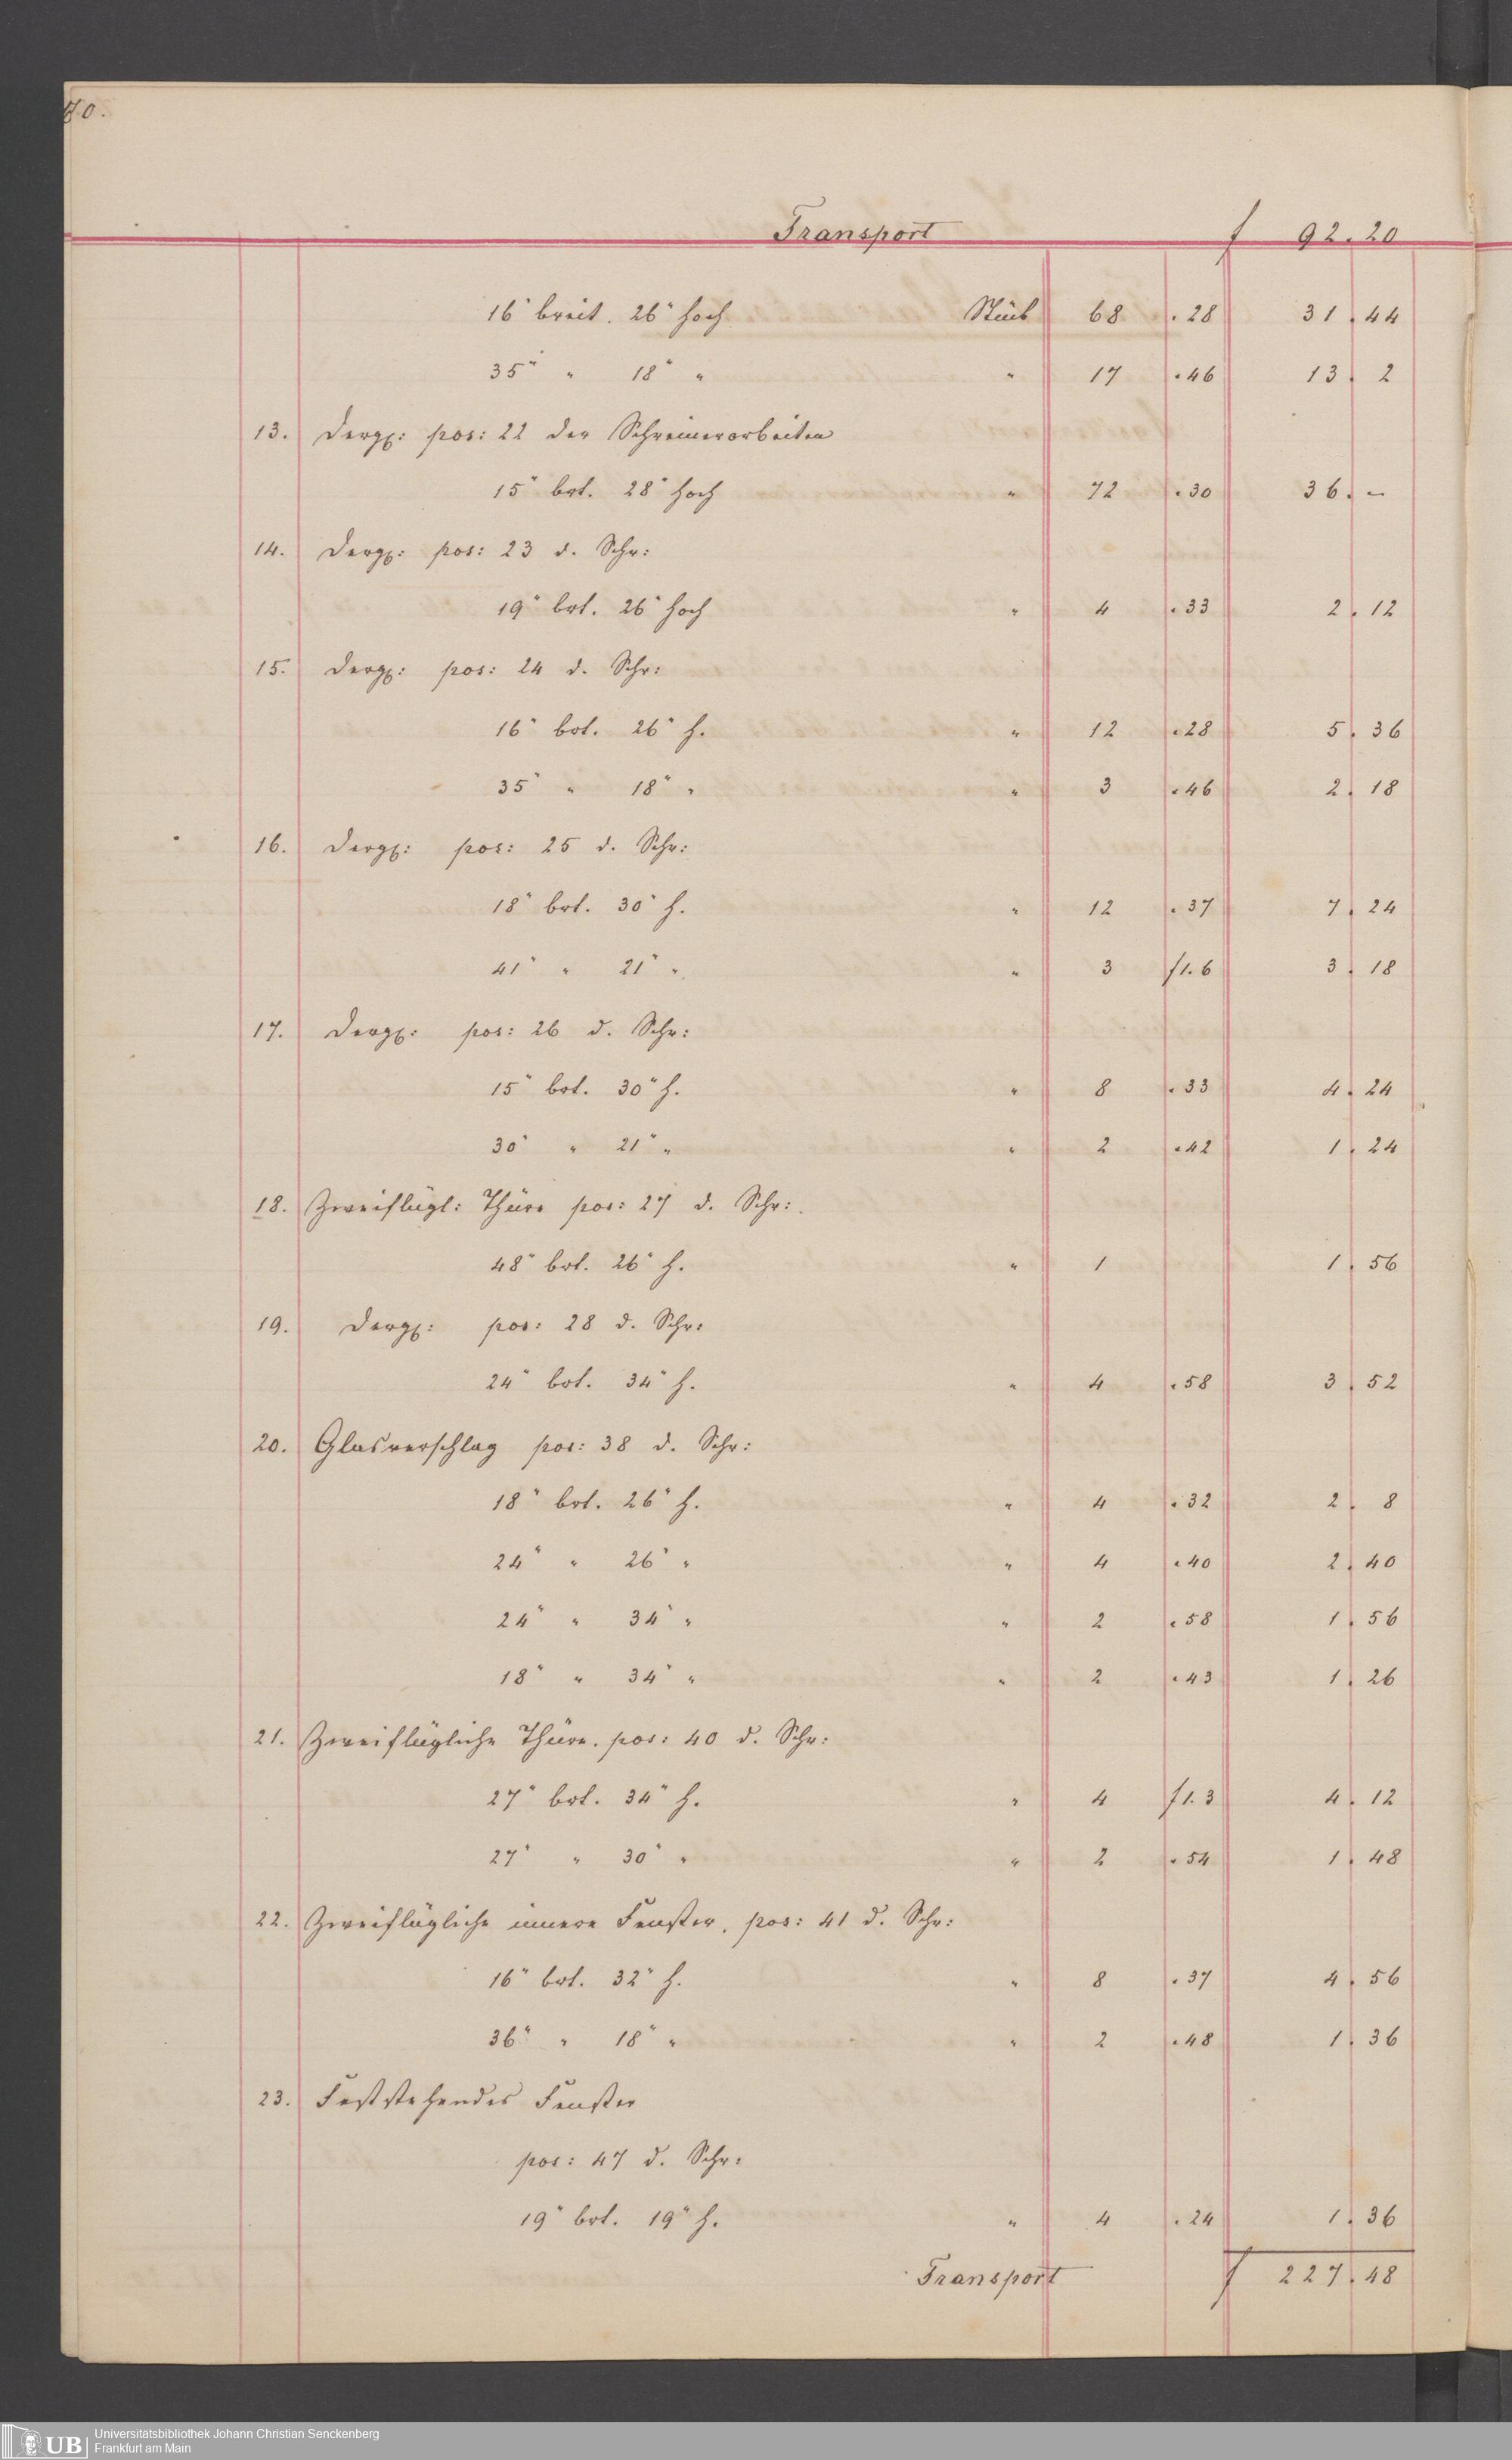 70.
Transport f 92.20
16" breit. 26" hoch Stück 68 .28 31.44
35" " 18" " " 17 .46 13. 2
13. Dergl: pos: 22 der Schreinerarbeiten
15" brt. 28" hoch " 72 .30 36. –
14. Dergl: pos: 23 d. Schr:
19" brt. 26" hoch " 4 .33 2.12
15. Dergl: pos: 24 d. Schr:
16" brt. 26" h. " 12 .28 5.36
35" " 18" " " 3 .46 2.18
16. Dergl: pos: 25 d. Schr:
18" brt. 30" h. " 12 .37 7.24
41" " 21" " " 3 f1.6 3.18
17. Dergl: pos: 26 d. Schr:
15" brt. 30" h. " 8 .33 4.24
30" " 21" " " 2 .42 1.24
18. Zweiflügl: Thüre pos: 27 d. Schr:
48" brt. 26" h. " 1 1.56
19. Dergl: pos: 28 d. Schr:
24" brt. 34" h. " 4 .58 3.52
20. Glasverschlag pos: 38 d. Schr:
18" brt. 26" h. " 4 .32 2. 8
24" " 26" " " 4 .40 2.40
24" " 34" " " 2 .58 1.56
18" " 34" " " 2 .43 1.26
21. Zweiflügliche Thüre. pos: 40 d. Schr:
27" brt. 34" h. " 4 f1.3 4.12
27" " 30" " " 2 .54 1.48
22. Zweiflügliche innere Fenster, pos: 41 d. Schr:
16" brt. 32" h. " 8 .37 4.56
36" " 18" " " 2 .48 1.36
23. Feststehendes Fenster
pos: 47 d. Schr:
19" brt. 19" h. " 4 .24 1.36
Transport f 227.48
UB Universitätsbibliothek Johann Christian Senckenberg
Frankfurt am Main